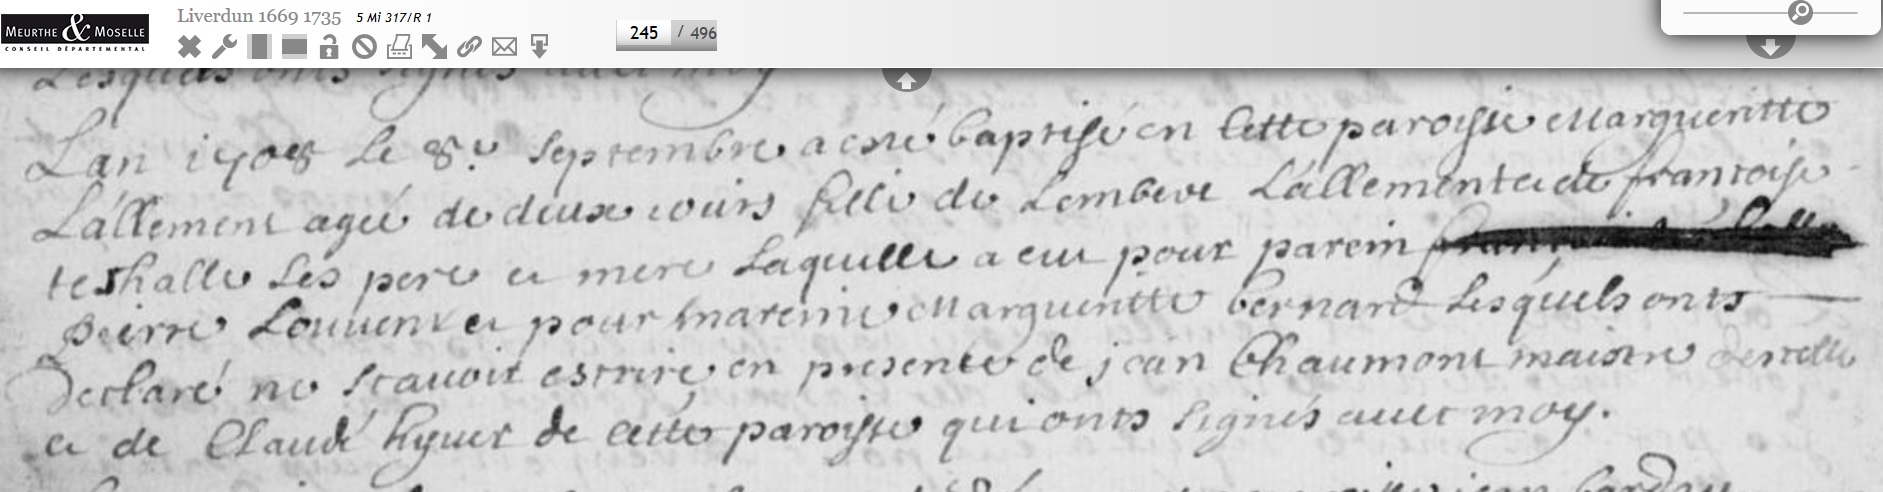 Liverdun 1669 1735 5 Mi 317/R 1
MEURTHE & MOSELLE
CONSEIL DÉPARTEMENTAL
245 / 496
Lesquels onts signes avec moy
Lan 1708 le 8e septembre a esté baptisé en cette paroisse Margueritte
Lallement ageé de deux iours fille de Lembere Lallement et de francoise
teshalle ses pere et mere Laquelle a eu pour parein
pierre Louvent et pour mareine Margueritte bernard Lesquels onts
declaré ne scauoir escrire en presence de jean Chaumont maistre descolle
et de Claude hyuer de cette paroisse qui onts signés avec moy.